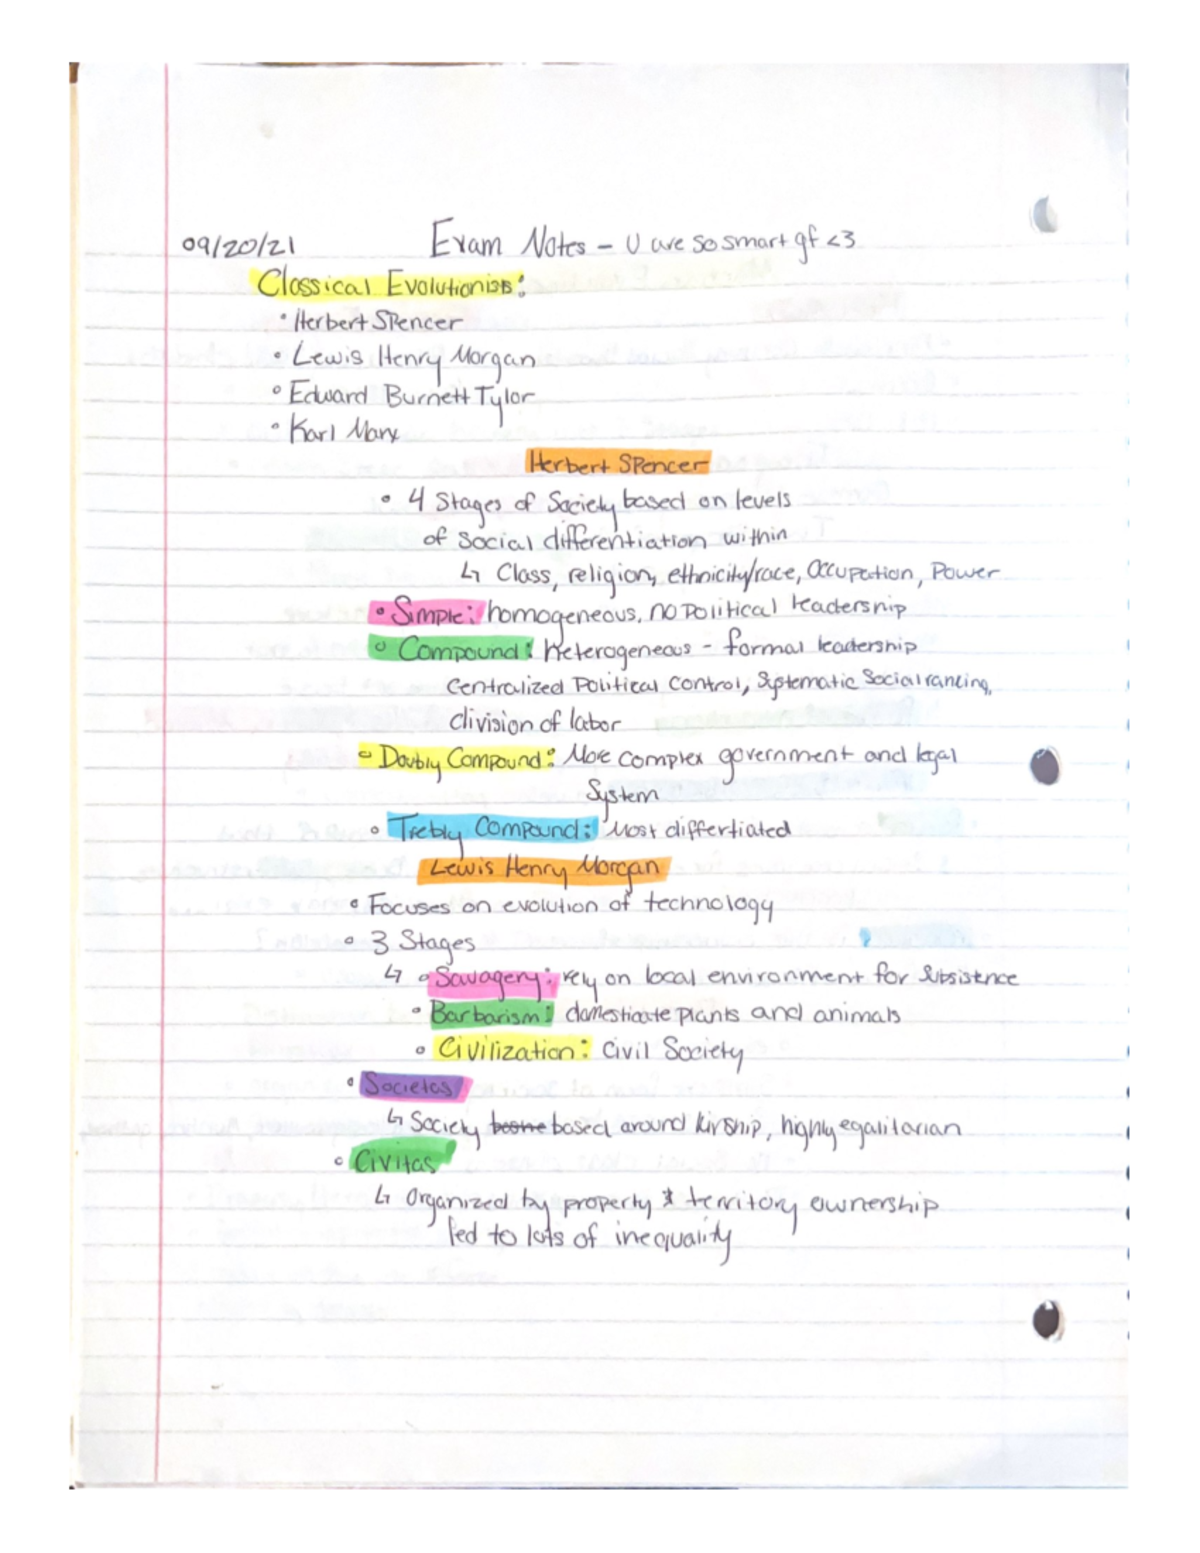 09/20/21 Exam Notes - U are so smart gf <3
Classical Evolutionists:
• Herbert Spencer
• Lewis Henry Morgan
• Edward Burnett Tylor
• Karl Marx
Herbert Spencer
• 4 Stages of Society based on levels
of Social differentiation within
↳ Class, religion, ethnicity/race, Occupation, Power
• Simple: homogeneous, no political leadership
• Compound: heterogeneous - formal leadership
Centralized Political Control, Systematic Social rancing,
division of labor
• Doubly Compound: More complex government and legal
System
• Trebly Compound: Most differtiated
Lewis Henry Morgan
• Focuses on evolution of technology
• 3 Stages
↳ • Savagery: rely on local environment for Subsistence
• Barbarism: domesticate plants and animals
• Civilization: Civil Society
• Societas
↳ Society based around kinship, highly egalitarian
• Civitas
↳ Organized by property & territory ownership
led to lots of inequality